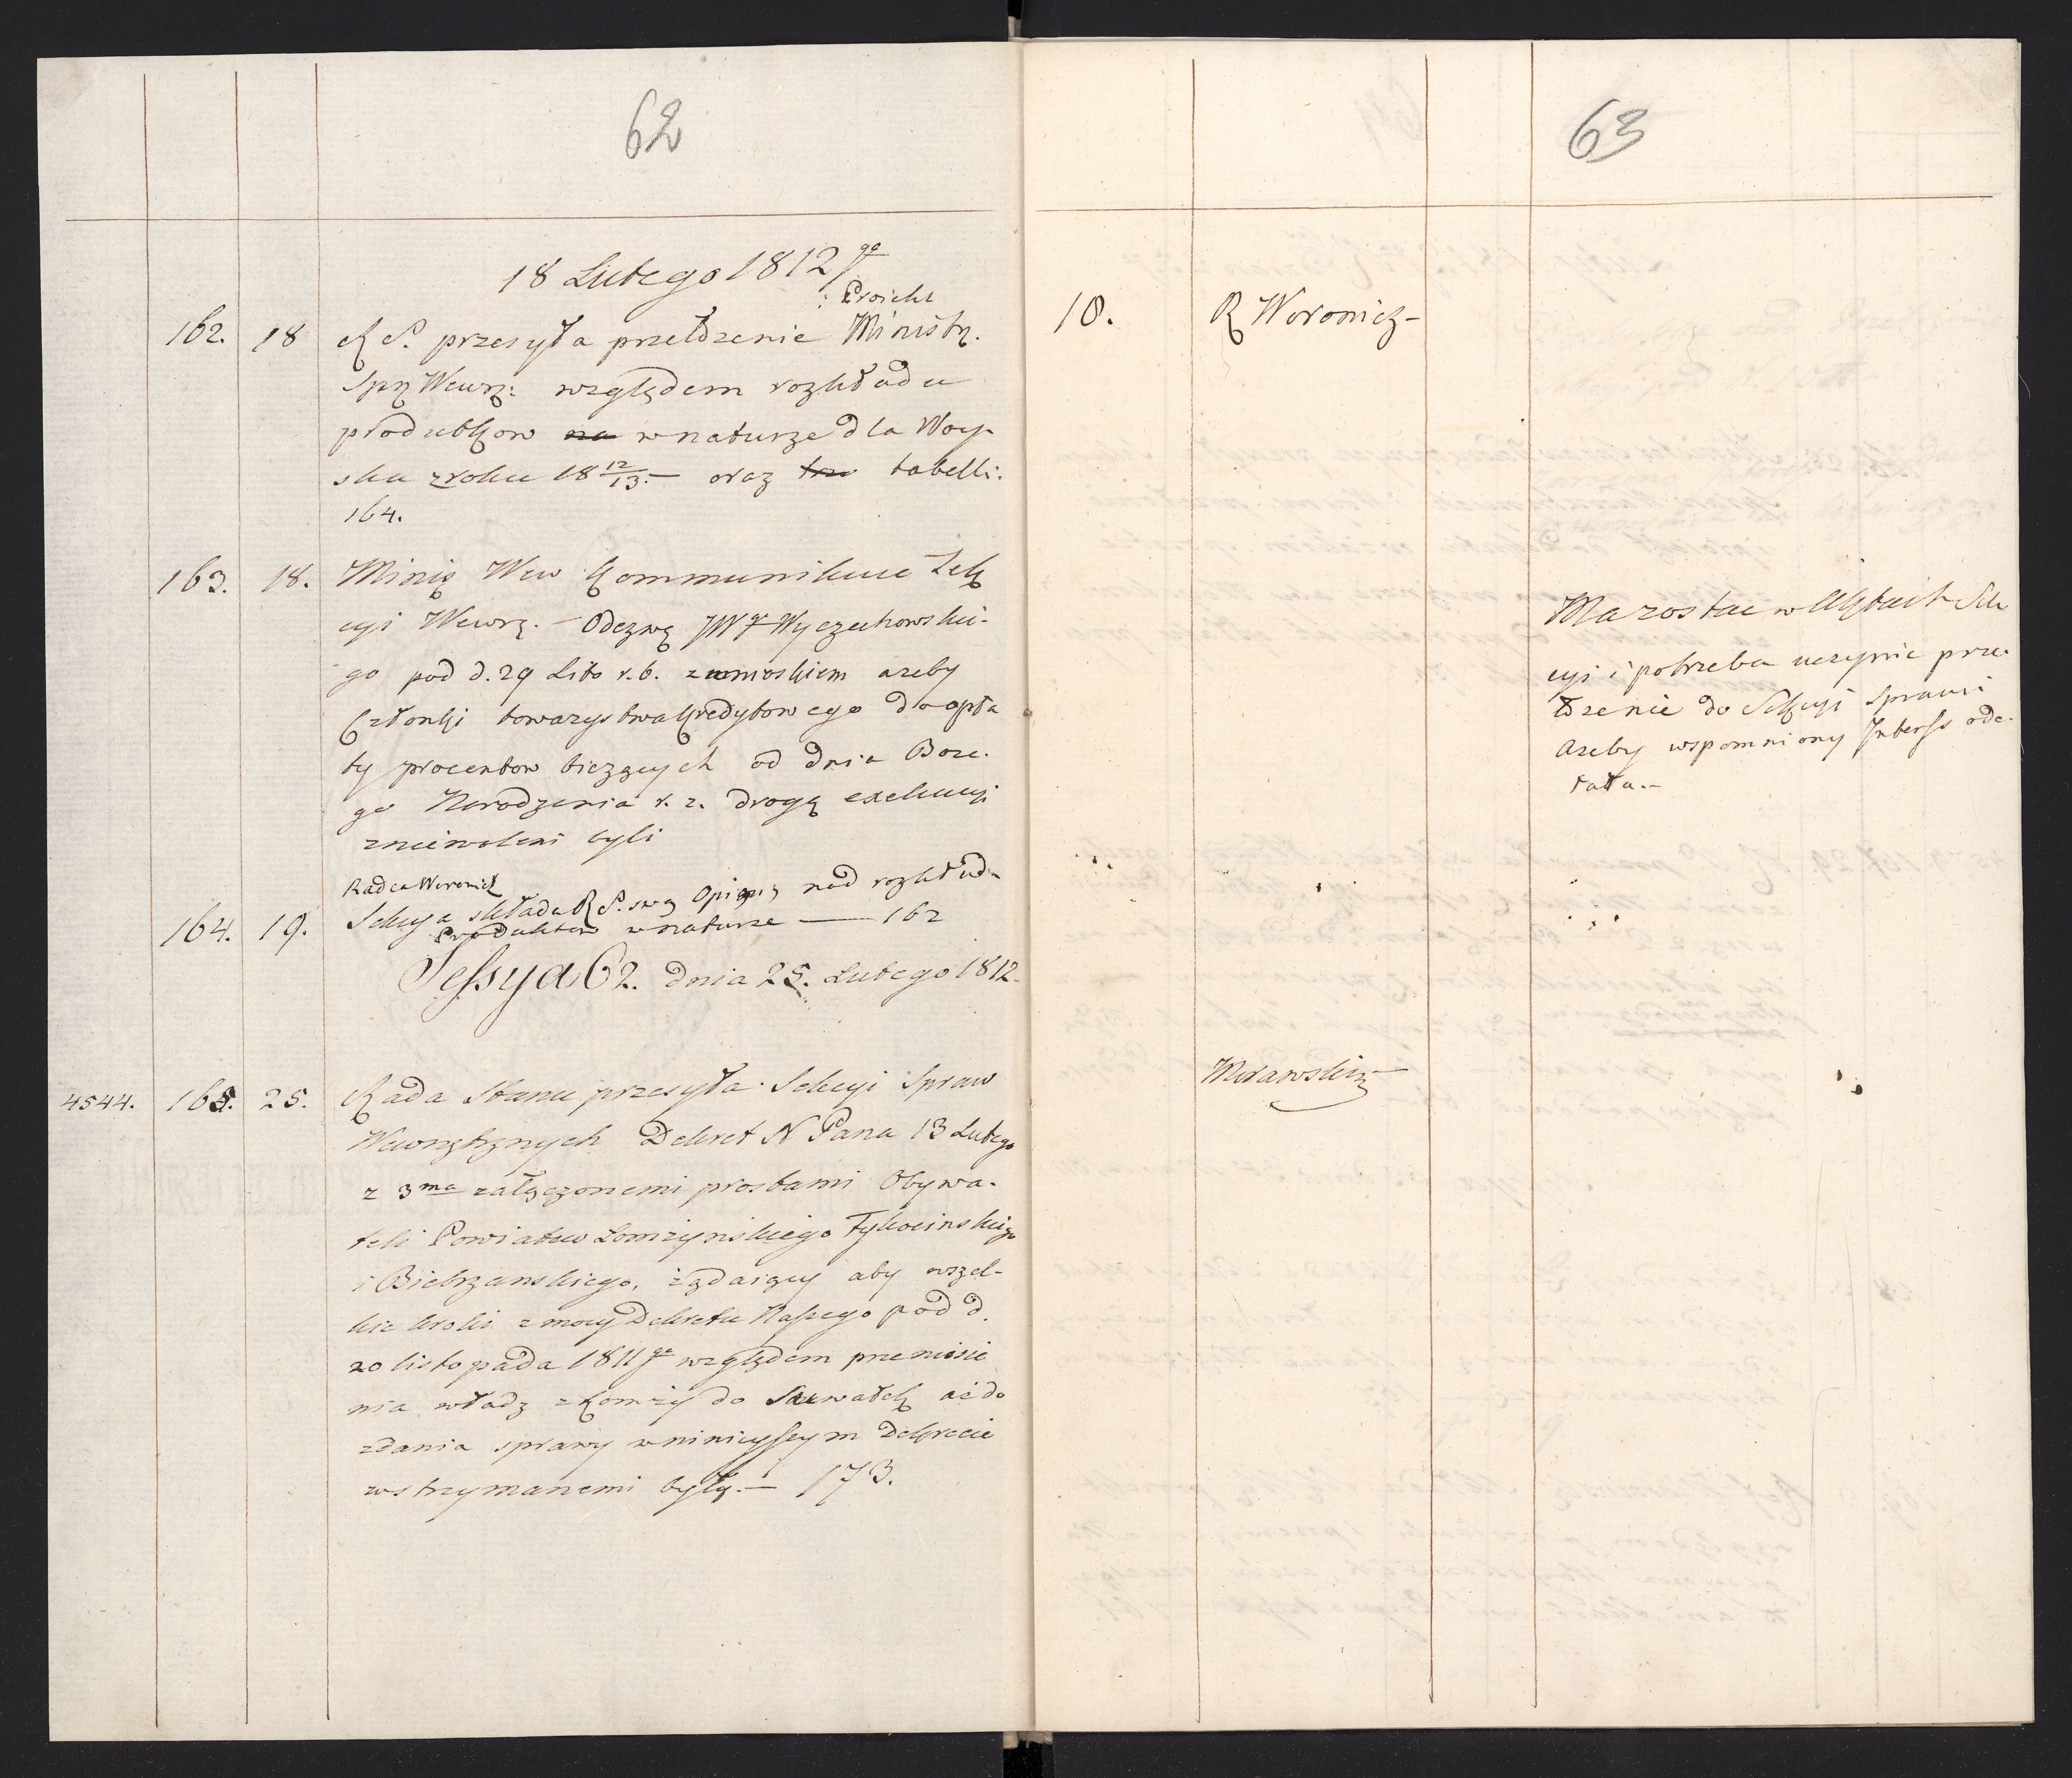 62
18 Lutego 1812 go
: Proiekt
162. 18 R S. przesyła przełożenie Ministr.
Spr Wewn: względem rozkładu
produktow na w naturze dla Woy-
ska z roku 18 12/13. — oraz tabelli.
164.
163. 18. Minis Wew Kommunikuie Sek
cyi Wewn. — Odezwę JW Wyczechowski-
go pod d. 29 r. b. z wnioskiem azeby
Członki towarzystwa kredytowego do opła
ty procentow bieżących od dnia Boze-
go Narodzenia r. z. drogą exekucyi
zniewoleni byli
Radca Woronicz
164. 19. Sekcya składa R S. swą Opinią nad rozkład-
Produktow w naturze — 162
Sessya 62. dnia 25. Lutego 1812.
4544. 165. 25. Rada Stanu przesyła Sekcyi Spraw
Wewnętrznych Dekret N Pana 13 Lutego
z 3ma załączonemi prosbami Obywa-
teli Powiatow Łomżynskiego Tykocinskiego
i Biebrzanskiego, żądaiący aby wszel-
kie kroki z mocy Dekretu Naszego pod d.
20 listopada 1811 go względem przeniesie
nia władz z Łomży do Suwałk aż do
zdania sprawy w ninieyszym Dekrecie
wstrzymanemi były. — 173.
63
18. R Woronicz —
Ma zostac w Aktach Sek
cyi i potrzeba uczynic prze-
łożenie do Sekcyi Sprawi
Azeby wspomniony Interss ode-
słała. —
Morawski